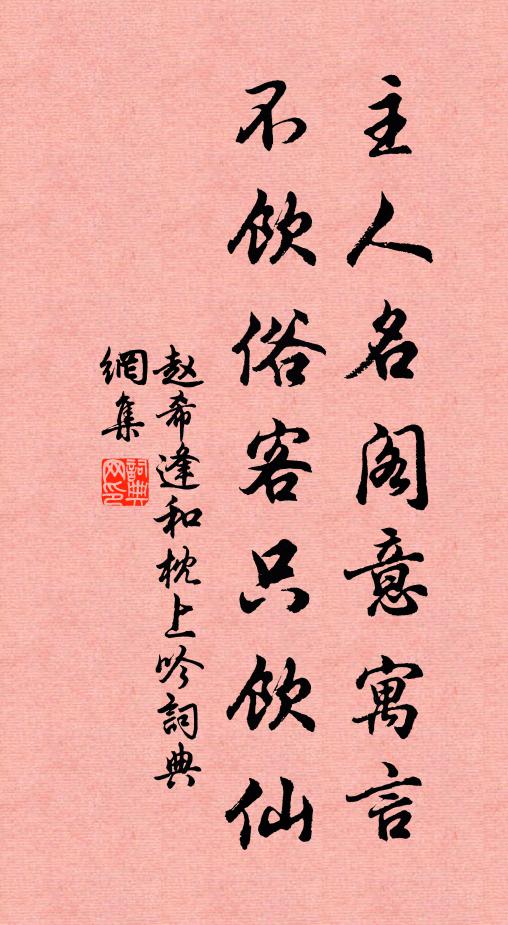 主人名阁意寓言
不饮俗客只饮仙
赵希逢和枕上吟詞典
網集
詞典
网印